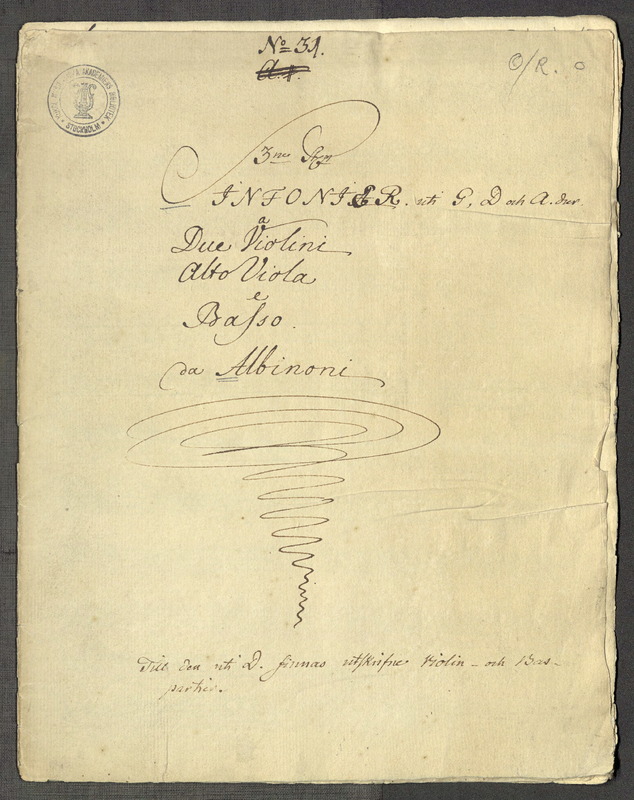 No 31.
O/R. o
KUNGL. MUSIKALISKA AKADEMIENS BIBLIOTEK
STOCKHOLM
3ne
SINFONIER. uti G, D och A. dur
a
Due Violini
Alto Viola
e
Basso.
da Albinoni
Till den uti D. finnas utskrifne Violin- och Bas-
partier.